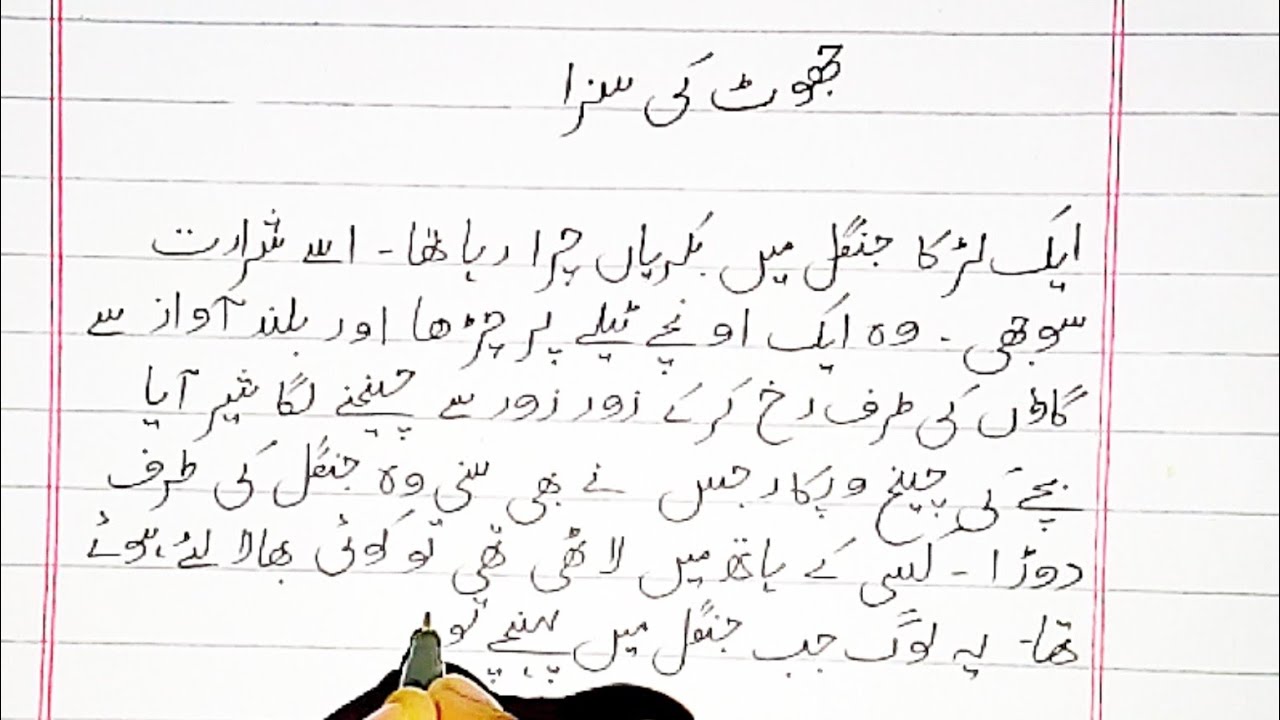 جھوٹ کی سزا
ایک لڑکا جنگل میں بکریاں چرا رہا تھا۔ اسے شرارت
سوجھی۔ وہ ایک اونچے ٹیلے پر چڑھا اور بلند آواز سے
گاؤں کی طرف رخ کر کے زور زور سے چیخنے لگا شیر آیا
بچے کی چیخ و پکار جس نے بھی سنی وہ جنگل کی طرف
دوڑا۔ کسی کے ہاتھ میں لاٹھی تھی تو کوئی بھالا لئے ہوئے
تھا۔ یہ لوگ جب جنگل میں پہنچے تو